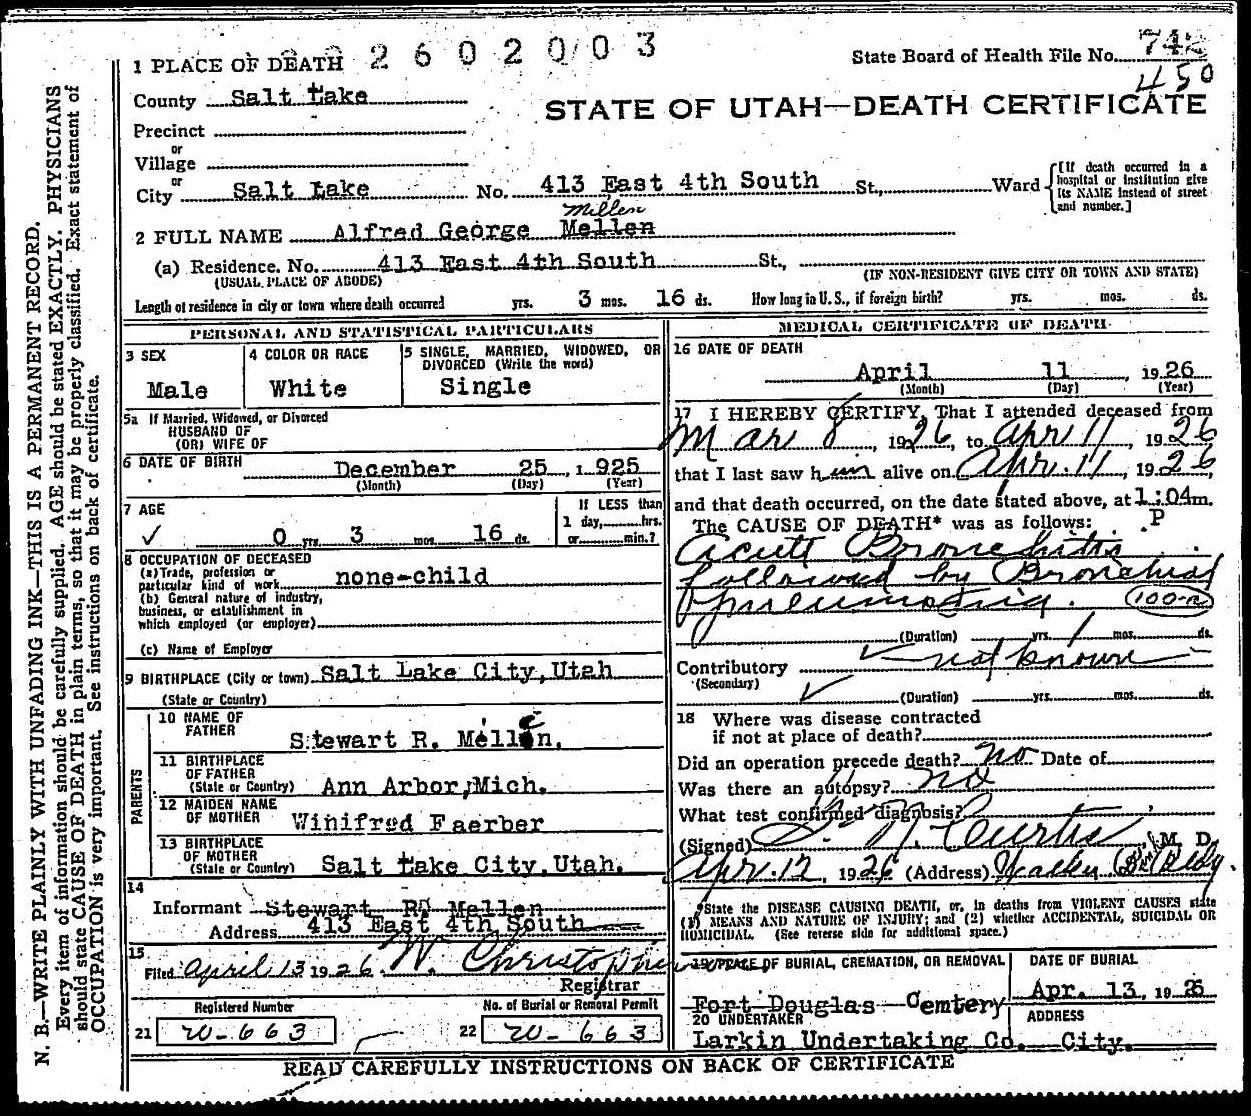 1 PLACE OF DEATH 2602003
State Board of Health File No. 742
450
County Salt Lake
STATE OF UTAH—DEATH CERTIFICATE
Precinct
or
Village
or
City Salt Lake No. 413 East 4th South St., Ward
[If death occurred in a hospital or institution give its NAME instead of street and number.]
Millen
2 FULL NAME Alfred George Mellen
(a) Residence. No. 413 East 4th South St.,
(USUAL PLACE OF ABODE) (IF NON-RESIDENT GIVE CITY OR TOWN AND STATE)
Length of residence in city or town where death occurred yrs. 3 mos. 16 ds. How long in U. S., if foreign birth? yrs. mos. ds.
PERSONAL AND STATISTICAL PARTICULARS
3 SEX
Male
4 COLOR OR RACE
White
5 SINGLE, MARRIED, WIDOWED, OR
DIVORCED (Write the word)
Single
5a If Married, Widowed, or Divorced
HUSBAND OF
(OR) WIFE OF
6 DATE OF BIRTH December 25, 1925
(Month) (Day) (Year)
7 AGE
0 yrs. 3 mos. 16 ds.
If LESS than
1 day, hrs.
or min.?
8 OCCUPATION OF DECEASED
(a) Trade, profession or
particular kind of work none-child
(b) General nature of industry,
business, or establishment in
which employed (or employer)
(c) Name of Employer
9 BIRTHPLACE (City or town) Salt Lake City, Utah
(State or Country)
PARENTS
10 NAME OF
FATHER
Stewart R. Mellen.
11 BIRTHPLACE
OF FATHER
(State or Country) Ann Arbor, Mich.
12 MAIDEN NAME
OF MOTHER
Winifred Faerber
13 BIRTHPLACE
OF MOTHER
(State or Country) Salt Lake City, Utah.
14
Informant Stewart R. Mellen
Address 413 East 4th South
15
Filed April 13 1926 W. Christopherson
Registrar
Registered Number
21 W-663
No. of Burial or Removal Permit
22 W-663
MEDICAL CERTIFICATE OF DEATH
16 DATE OF DEATH
April 11, 1926
(Month) (Day) (Year)
17 I HEREBY CERTIFY, That I attended deceased from
Mar 8, 1926, to Apr 11, 1926
that I last saw him alive on Apr. 11, 1926,
and that death occurred, on the date stated above, at 1:04 m.
The CAUSE OF DEATH* was as follows: P
Acute Bronchitis
followed by Bronchial
Pneumonia. (100-a)
(Duration) yrs. 1 mos. ds.
Contributory not known
(Secondary)
(Duration) yrs. mos. ds.
18 Where was disease contracted
if not at place of death?
Did an operation precede death? no Date of
Was there an autopsy? no
What test confirmed diagnosis?
(Signed) Curtis M. D.
Apr. 12, 1926 (Address) Walker Bank Bldg.
*State the DISEASE CAUSING DEATH, or, in deaths from VIOLENT CAUSES state
(1) MEANS AND NATURE OF INJURY; and (2) whether ACCIDENTAL, SUICIDAL OR
HOMICIDAL. (See reverse side for additional space.)
19 PLACE OF BURIAL, CREMATION, OR REMOVAL
Fort Douglas Cemtery
DATE OF BURIAL
Apr. 13, 1926
20 UNDERTAKER
Larkin Undertaking Co.
ADDRESS
City.
READ CAREFULLY INSTRUCTIONS ON BACK OF CERTIFICATE
N. B.—WRITE PLAINLY WITH UNFADING INK—THIS IS A PERMANENT RECORD.
Every item of information should be carefully supplied. AGE should be stated EXACTLY. PHYSICIANS
should state CAUSE OF DEATH in plain terms, so that it may be properly classified. Exact statement of
OCCUPATION is very important. See instructions on back of certificate.